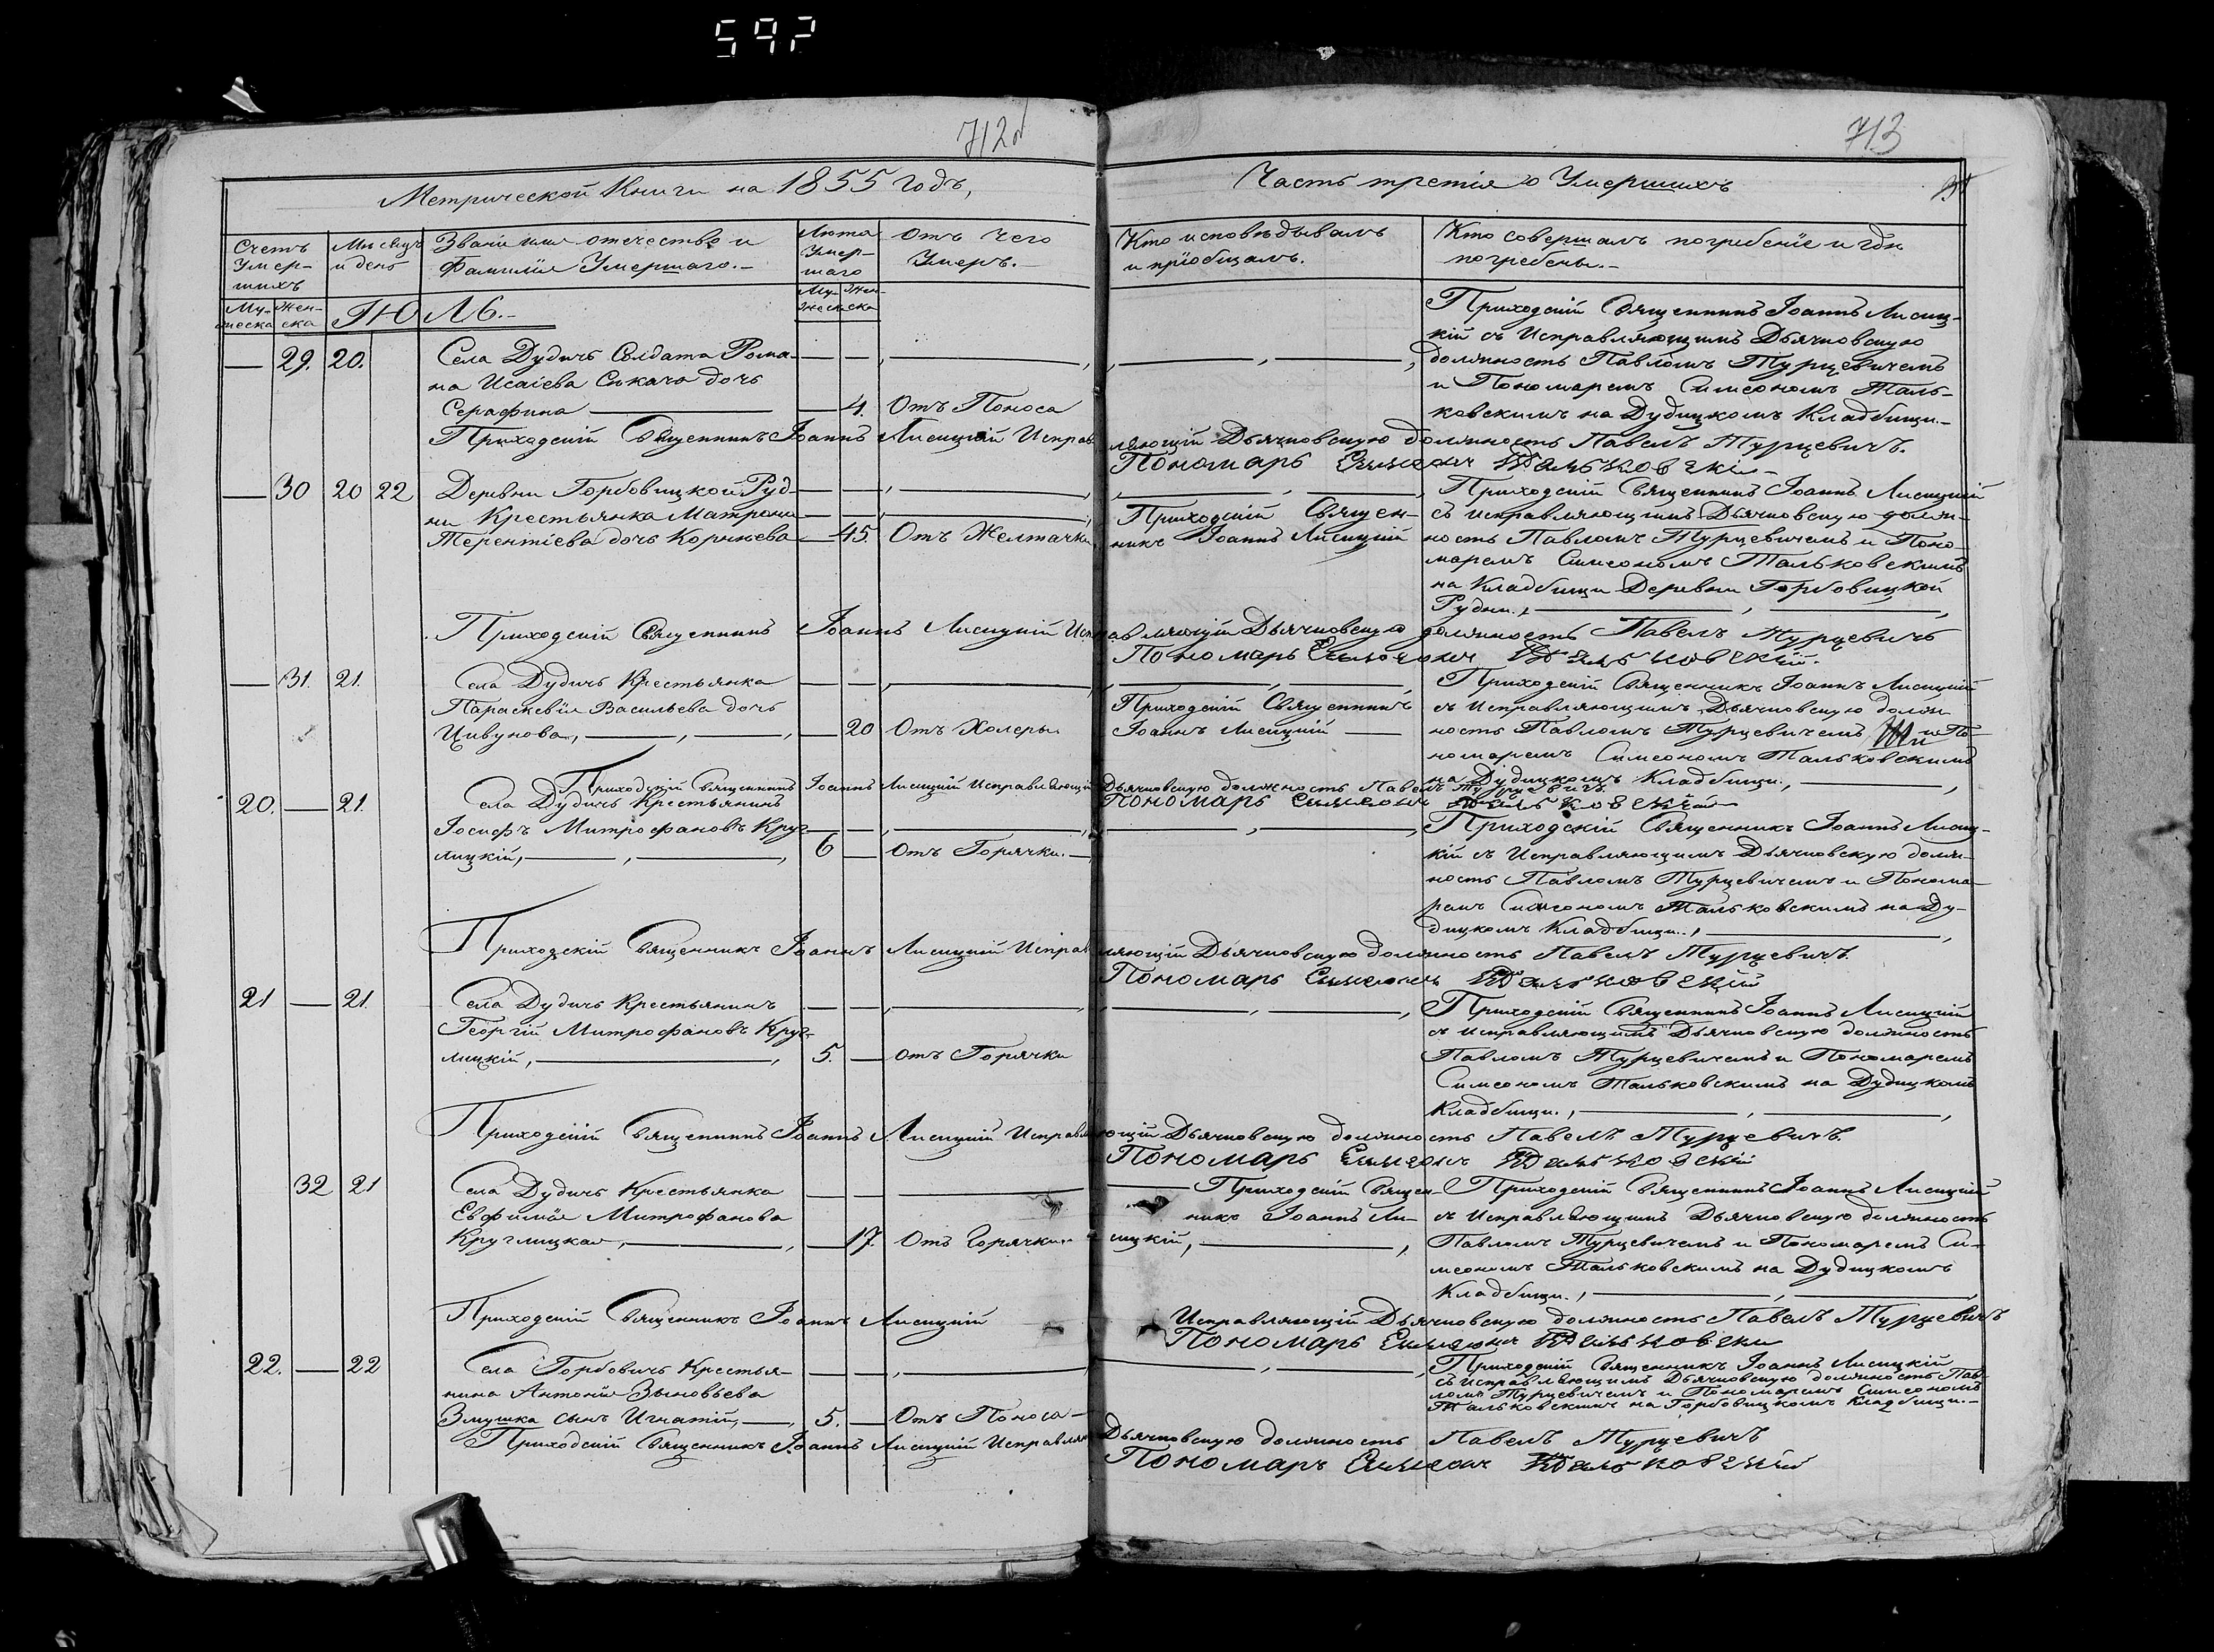 597
712
713
Метрической Книги на 1855 годъ,
Часть третія о Умершихъ
Счетъ Умершихъ
Мѣсяцъ и день
Званіе имя отечество и Фамилія Умершаго.
Лѣта Умершаго
Отъ чего Умеръ.
Кто исповѣдывалъ и пріобщалъ.
Кто совершалъ погребеніе и гдѣ погребены.
Мужеска Женска
ІЮЛЬ.
Мужеска Женска
29. 20.
Села Дудичъ Солдата Рома-
на Исаіева Сикача дочь
Серафима 4. Отъ Поноса
Приходскій Священникъ Іоаннъ Лисиц-
кій съ Исправляющимъ Дьячковскую
должность Павломъ Турцевичемъ
и Пономаремъ Симеономъ Таль-
ковскимъ на Дудицкомъ Кладбищи.
Приходскій Священникъ Іоаннъ Лисицкій Исправляющій Дьячковскую должность Павелъ Турцевичъ.
Пономарь Симеонъ Тальковскій
30 20 22
Деревни Горбовицкой Руд-
ни Крестьянка Матрона
Терентіева дочь Корнѣева 45. Отъ Желтачки
Приходскій Священ-
никъ Іоаннъ Лисицкій
Приходскій Священникъ Іоаннъ Лисицкій
съ исправляющимъ Дьячковскую долж-
ность Павломъ Турцевичемъ и Поно-
маремъ Симеономъ Тальковскимъ
на Кладбищи Деревни Горбовицкой
Рудни.
Приходскій Священникъ Іоаннъ Лисицкій Исправляющій Дьячковскую должность Павелъ Турцевичъ
Пономарь Симеонъ Тальковскій.
31. 21.
Села Дудичъ Крестьянка
Параскевія Васильева дочь
Цивунова, 20 Отъ Холеры
Приходскій Священникъ
Іоаннъ Лисицкій
Приходскій Священникъ Іоаннъ Лисицкій
съ Исправляющимъ Дьячковскую долж-
ность Павломъ Турцевичемъ и По-
номаремъ Симеономъ Тальковскимъ
на Дудицкомъ Кладбищи.,
Приходскій Священникъ Іоаннъ Лисицкій Исправляющій Дьячковскую должность Павелъ Турцевичъ
Пономарь Симеонъ Тальковскій
20. 21.
Села Дудичъ Крестьянинъ
Іосифъ Митрофановъ Круг-
лицкій, 6 Отъ Горячки.
Приходскій Священникъ Іоаннъ Лисиц-
кій съ Исправляющимъ Дьячковскую долж-
ность Павломъ Турцевичемъ и Понома-
ремъ Симеономъ Тальковскимъ на Ду-
дицкомъ Кладбищи.,
Приходскій Священникъ Іоаннъ Лисицкій Исправляющій Дьячковскую должность Павелъ Турцевичъ.
Пономарь Симеонъ Тальковскій
21 21.
Села Дудичъ Крестьянинъ
Георгій Митрофановъ Круг-
лицкій, 5. отъ Горячки
Приходскій Священникъ Іоаннъ Лисицкій
съ исправляющимъ Дьячковскую должность
Павломъ Турцевичемъ и Пономаремъ
Симеономъ Тальковскимъ на Дудицкомъ
Кладбищи.,
Приходскій Священникъ Іоаннъ Лисицкій Исправляющій Дьячковскую должность Павелъ Турцевичъ.
Пономарь Симеонъ Тальковскій
32 21
Села Дудичъ Крестьянка
Евфимія Митрофанова
Круглицкая, 17. Отъ Горячки
Приходскій Священ-
никъ Іоаннъ Ли-
сицкій,
Приходскій Священникъ Іоаннъ Лисицкій
съ Исправляющимъ Дьячковскую должность
Павломъ Турцевичемъ и Пономаремъ Си-
меономъ Тальковскимъ на Дудицкомъ
Кладбищи.,
Приходскій Священникъ Іоаннъ Лисицкій Исправляющій Дьячковскую должность Павелъ Турцевичъ
Пономарь Симеонъ Тальковскі
22. 22
Села Горбовичъ Крестья-
нина Антонія Зыновьева
Змушка сынъ Игнатій, 5. Отъ Поноса
Приходскій Священникъ Іоаннъ Лисицкій
съ исправляющимъ Дьячковскую должность Пав-
ломъ Турцевичемъ и Пономаремъ Симеономъ
Тальковскимъ на Горбовицкомъ Кладбищи.
Приходскій Священникъ Іоаннъ Лисицкій Исправляю Дьячковскую должность Павелъ Турцевичъ
Пономаръ Симеонъ Тальковскій